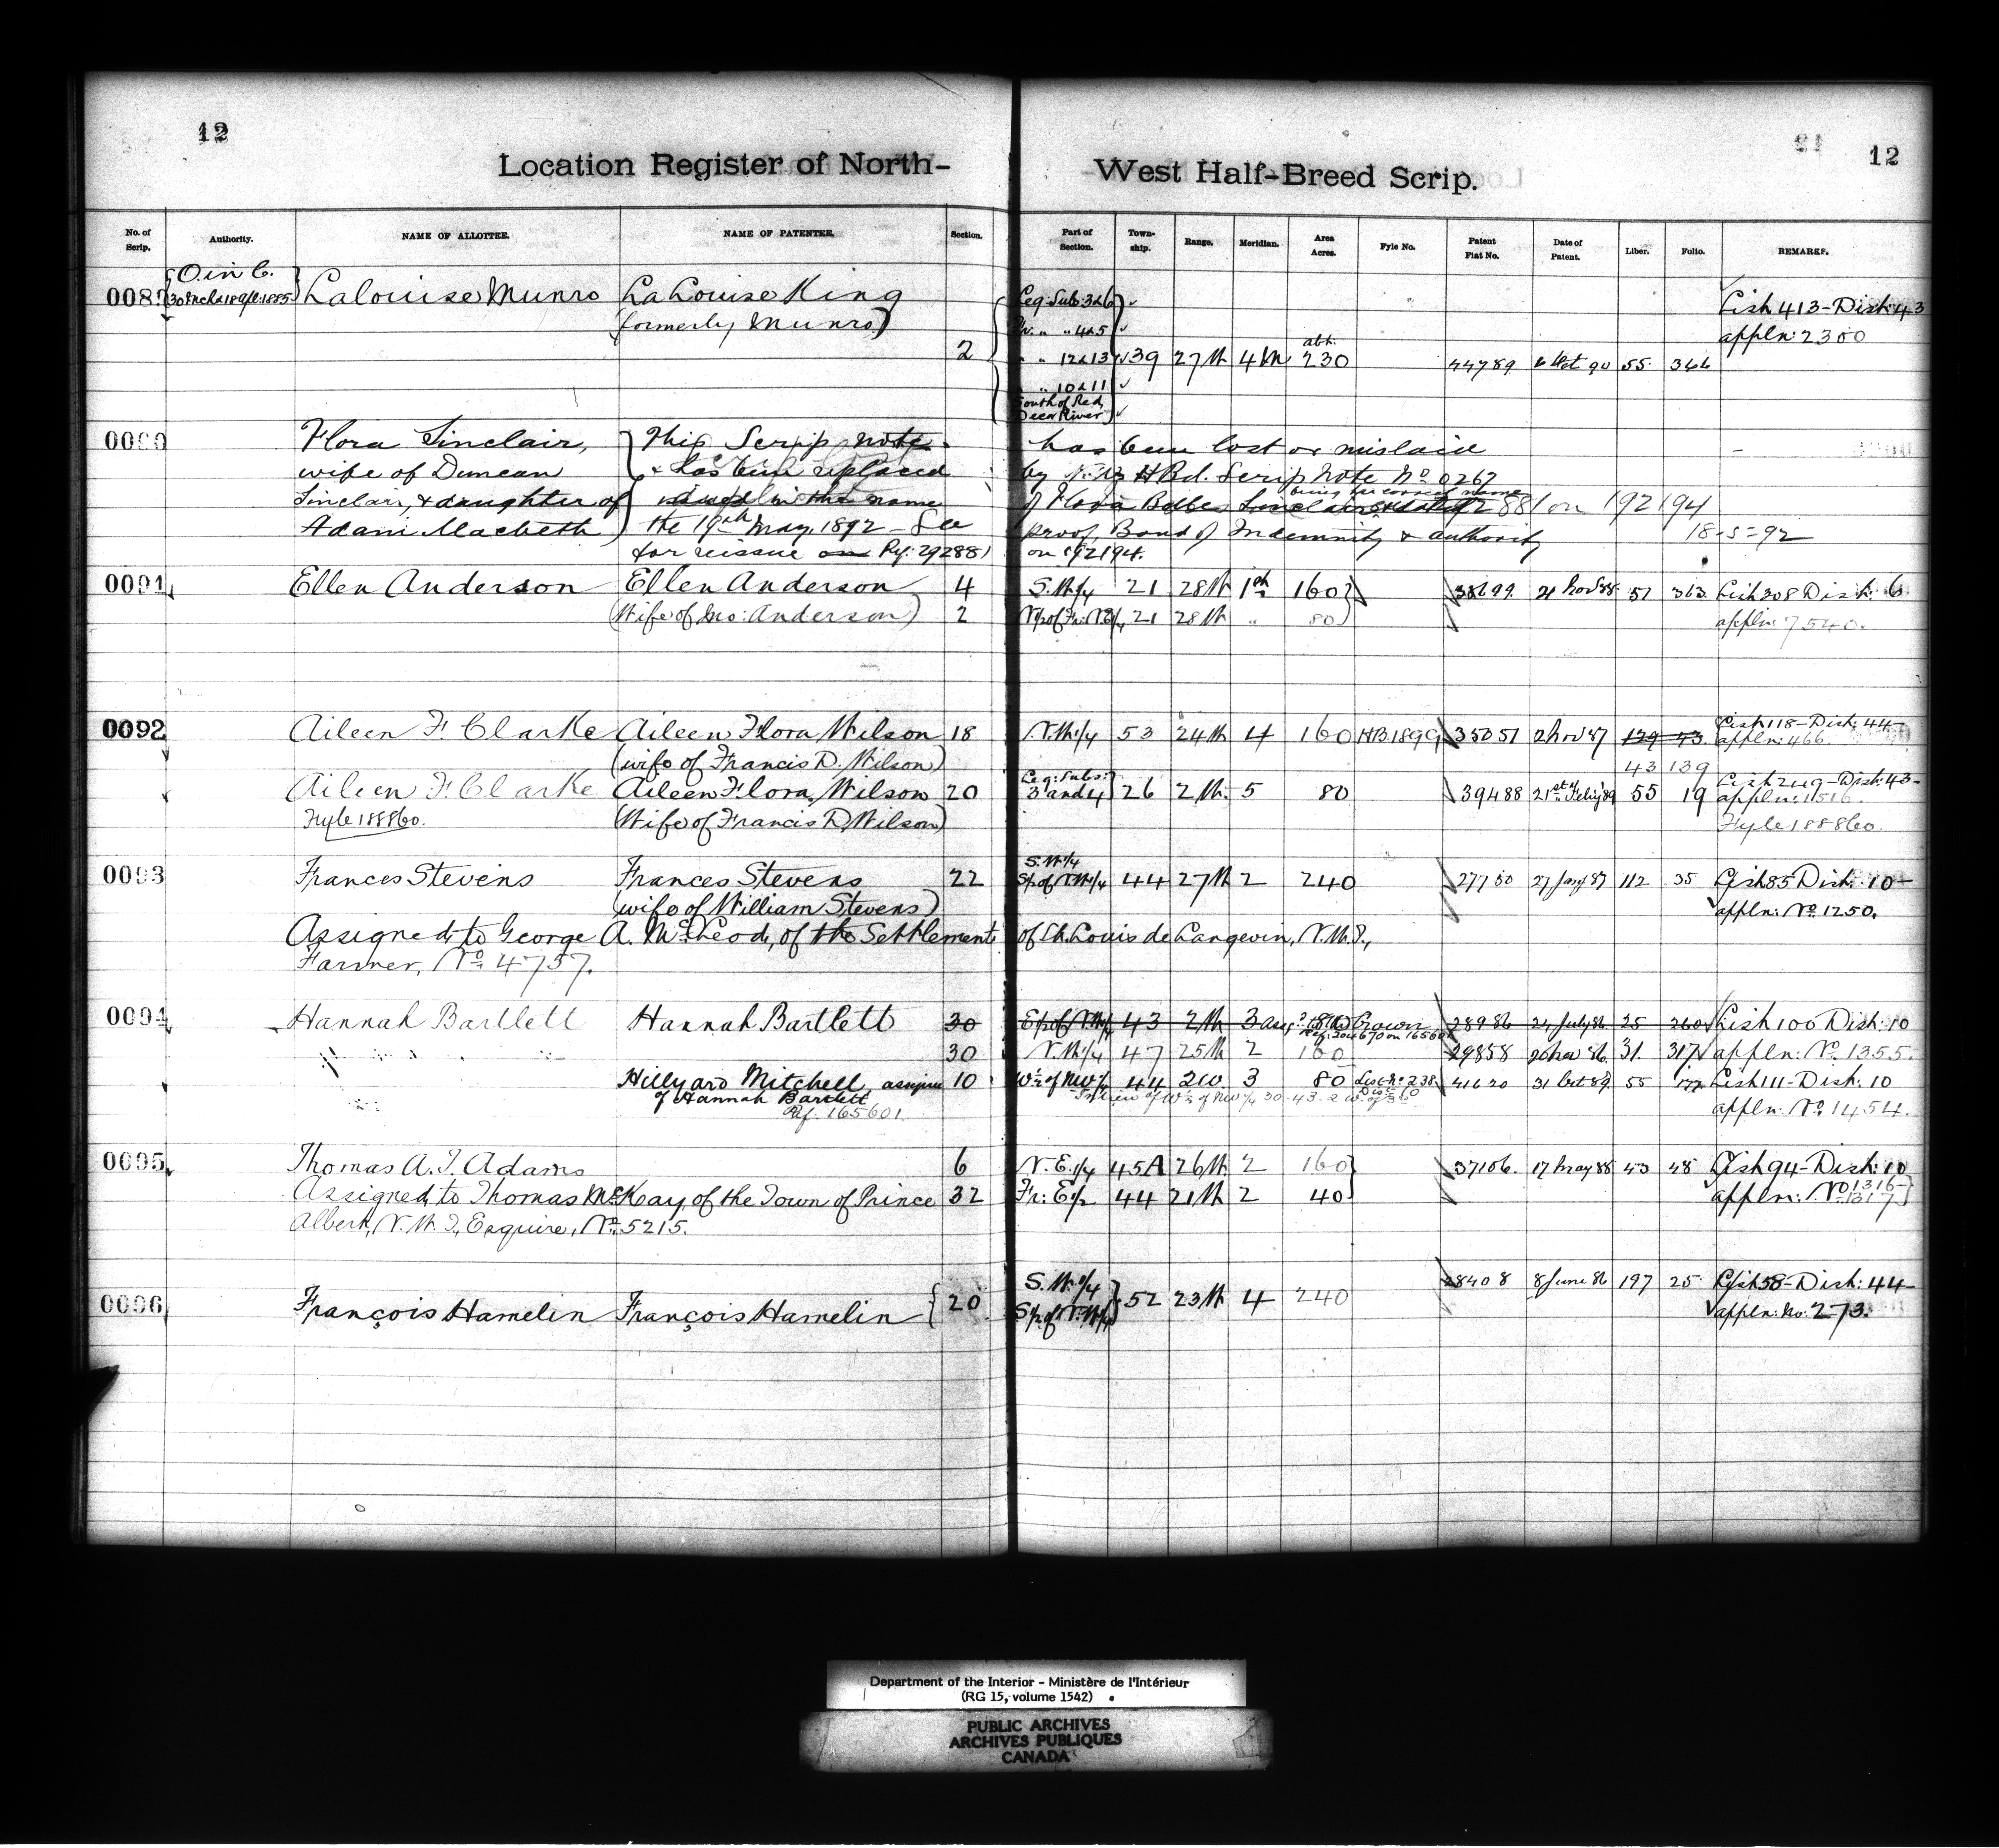 12
12
Location Register of North-
West Half-Breed Scrip.
No. of Scrip. Authority. NAME OF ALLOTTEE. NAME OF PATENTEE. Section. Part of Section. Town-ship. Range. Meridian. Area Acres. Fyle No. Patent Fiat No. Date of Patent. Liber. Folio. REMARKS.
O. in C.
Lalouise Munro LaLouise King Leg: Sub: 3&6 Lish 413-Dish: 43
(formerly Munro) " 4&5 appln: 2300
2 " " 12&13 39 27 W 4 M abt. 230 44789 90 55 366
" 10&11
South of Red
Deer River
Flora Sinclair, This Scrip note has been lost or mislaid
wife of Duncan & has been replaced by N.W. H Bd. Scrip Note No 0267
Sinclair, & daughter of issued in the name of Flora being her correct name 881 on 192194
Adam Macbeth the 19th May, 1892 - See proof, Bond of Indemnity & authority 18-5-92
for reissue on Rf: 292881 on 192194.
0091 Ellen Anderson Ellen Anderson 4 S.W.1/4 21 28 W 1st 160 38699 21 Nov 88 57 363 Lish 308 Dish: 6
(Wife of Jno: Anderson) 2 21 28 W " 80 appln: 7540.
0092 Aileen F. Clarke Aileen Flora Wilson 18 N.W.1/4 53 24 W 4 160 HB.1899 35051 2 Nov 87 139 43. Lish 118-Dish: 44-
(wife of Francis D. Wilson) 43 139 appln: 466.
Aileen F. Clarke Aileen Flora Wilson 20 Leg: Subs: 3 and 4 26 2 W. 5 80 39488 21st Feby 89 55 19 Lish 249-Dish: 43-
appln: 1516.
Fyle 188860. (Wife of Francis D. Wilson) Fyle 188860.
0093 Frances Stevens Frances Stevens 22 S.W.1/4 S½ of N.W.1/4 44 27 W 2 240 27780 27 Jany 87 112 35 Lish 85 Dish: 10-
(wife of William Stevens) appln: No. 1250.
Assigned to George A. McLeod, of the Settlement of St. Louis de Langevin, N.W.T.,
Farmer, No. 4757.
0094 Hannah Bartlett Hannah Bartlett 30 E½ of N.W.1/4 43 2 W 3 Crown 28986 24 July 86 25 260 Lish 100 Dish: 10
Ref: 204670 on 165601
30 N.W.1/4 47 25 W 2 160 29858 Nov 86. 31. 317 appln: No. 1355.
Hillyard Mitchell, assignee 10 W½ of NW¼ 44 2W. 3 80 List No 238 41620 31 Oct 89 55 177 Lish 111-Dish: 10
of Hannah Bartlett In lieu of W½ of NW¼ 30-43-2 W. of 3rd
Rf. 165601. appln: No. 1454.
0095 Thomas A. T. Adams 6 N.E.1/4 45A 26 W. 2 160 37106. 17 May 88 43 48 Lish 94-Dish: 10
Assigned to Thomas McKay, of the Town of Prince 32 Fr: E½ 44 21 W 2 40 appln: No 1316- No 1317
Albert, N.W.T., Esquire, No. 5215.
0096 François Hamelin François Hamelin 20 S.W.1/4 S½ of N.W.1/4 52 23 W 4 240 28408 8 June 86 197 25 Lish 58-Dish: 44-
appln: no: 273.
Department of the Interior - Ministère de l'Intérieur
(RG 15, volume 1542)
PUBLIC ARCHIVES
ARCHIVES PUBLIQUES
CANADA